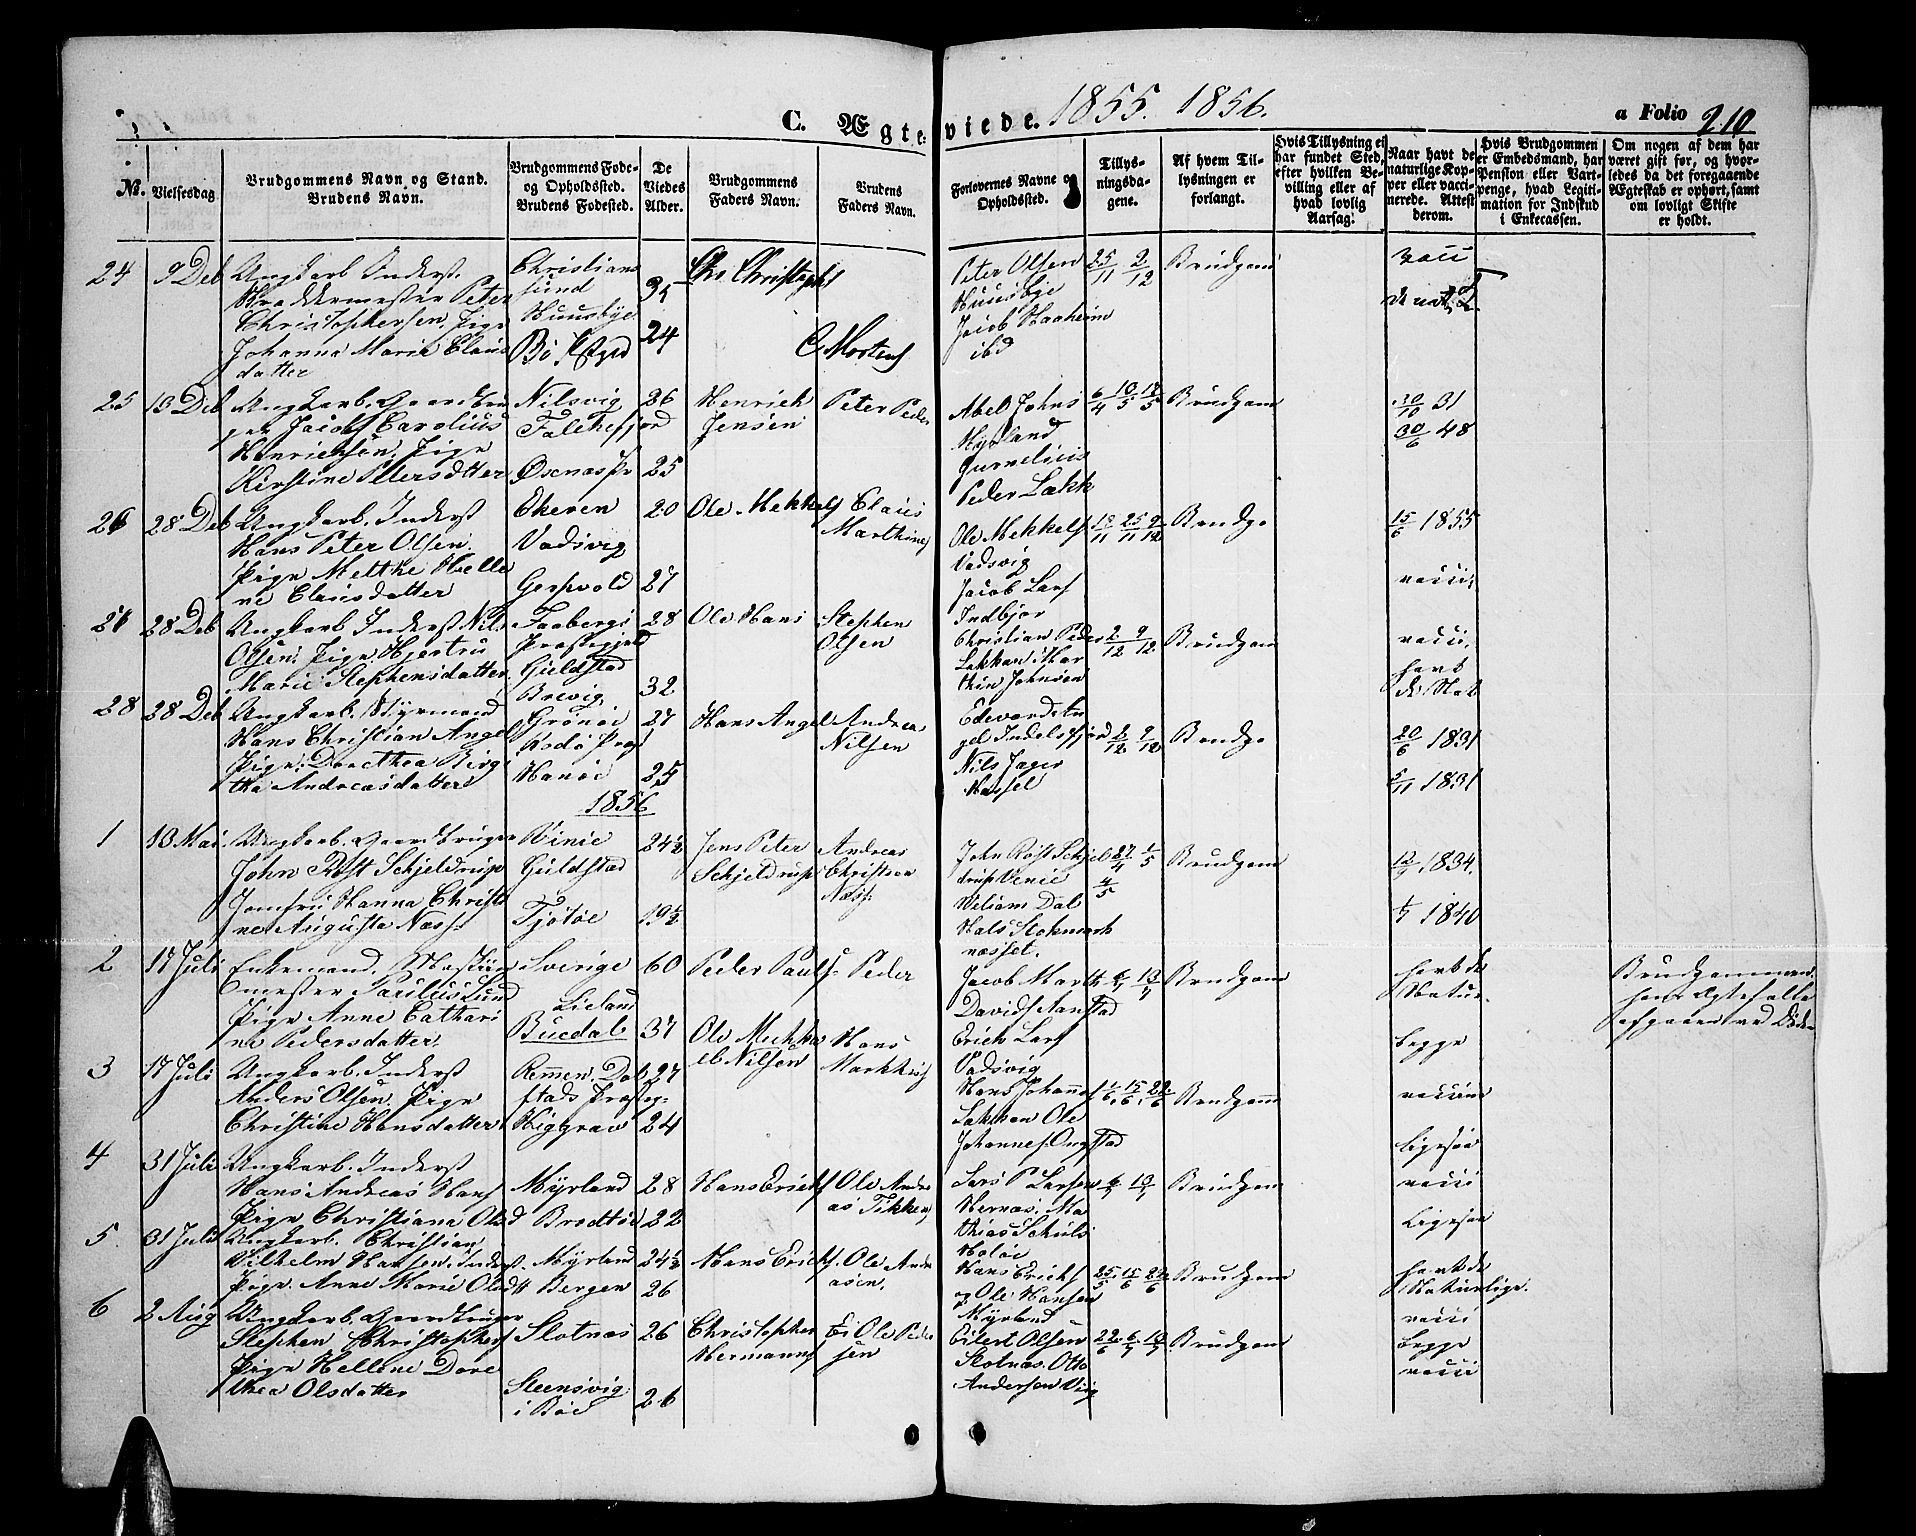 C. Ægteviede. 1855. 1856.
a Folio 210
No.
Vielsesdag
Brudgommens Navn og Stand.
Brudens Navn.
Brudgommens Føde-
og Opholdssted.
Brudens Fødested.
De
Viedes
Alder.
Brudgommens
Faders Navn.
Brudens
Faders Navn.
Forlovernes Navne og
Opholdssted.
Tillys-
ningsda-
gene.
Af hvem Til-
lysningen er
forlangt.
Hvis Tillysning ei
har fundet Sted,
efter hvilken Be-
villing eller af
hvad lovlig
Aarsag.
Naar havt de
naturlige Kop-
per eller vacci-
nerede. Attest
derom.
Hvis Brudgommen
er Embedsmand, har
Pension eller Vart-
penge, hvad Legiti-
mation for Indskud
i Enkecassen.
Om nogen af dem har
været gift før, og hvor-
ledes da det foregaaende
Ægteskab er ophørt, samt
om lovligt Skifte
er holdt.
24 9 Deb Ungkarb. Inderst.
Skræddermester Peter
Christophersen, Pige
Johanna Marie Claus
datter
Christians
sund
Huusbye
Bø
35
24
Chr Christoph
C Mortens
Peter Olsen
Huusbye
Jacob Haaheim
ibd
25/11 2/12
Brudgom
vacc
de nat
25 13 Deb Ungkarb. Gaardbru
ger Jacob Carolius
Henriksen, Pige
Kirstine Petersdatter
Nilsvig
Falchefjord
Øxnæs Pr
26
25
Henrich
Jensen
Peter Peder
Abel Johns
Myrland
Cornelius
Peder Løkk
6/4 10/5 18/5
Brudgom
30/10 31
30/6 48
26 28 Deb Ungkarb. Inderst
Hans Peter Olsen
Pige Methe Helle
ne Clausdatter
Ekeren
Vadsvig
Gerswold
20
27
Ole Mekkels
Claus
Marthines
Ole Mekkels
Vadsvig
Jacob Lars
Indbjor
18/11 25/11 9/12
Brudgo
15/6 1855
vacci,
28 Deb Ungkarb Inderst Nils
Olsen, Pige Hjertru
Marie Stephensdatter
Faabergs
Præstegjeld
Guldstad
28
32
Ole Hans
Stephen
Olsen
Christian Peders
Løkkan, Mar
thin Johnsen
2/12 9/12
Brudgom
vacci,
havt
de Nat
28 28 Deb Ungkarb.
Hans Christian Angel
Pige Dorethea Birg
the Andreasdatter
Brevig
Grønøe
Rødø Præst
Hanøe
27
25
Hans Angel
Andreas
Nilsen
Edevard An
gel Indelsfjord
Nils Jager
Hassel
2/12 9/12
Brudgo
20/6 1831
5/11 1831
1856
1 10 Mai Ungkarb. Gaardbruger
John Røst Schjeldrup
Jomfru Hanna Christi
ne Auguste Næss
Vinie
Guldstad
Tjøtøe
24½
19½
Jens Peter
Schjeldrup
Andreas
Christian
Næss
John Røst Schjel
drup Venie
Viliam Dal
Hals Stokmark
næsset.
27/4 1/5
4/5
Brudgom
12/7 1834.
1840
2 17 Juli Enkemand,
mester Paulus Lund
Pige Anne Cathari
ne Pedersdatter
Sverige
Lieland
Buedal
60
37
Peder Pauls
Peder
Jacob Mart
Davids Aanstad
Erich Lars
Vadsvig
Brudgom
havt de
Natur.
Brudgommen
hans Ægtefælle
afgaaed ved Døden
3 17 Juli Ungkarb. Inderst
Anders Olsen, Pige
Christine Hansdatter
Remmen. Dal
stads Præsteg-
Higgrav
27
24
Ole Mekka
el Nilsen
Hans
Markkus
Hans Johannes
Løkkan Ole
Johannes Ongstad
1/6, 15/6, 22/6
Brudgom
begge
vaccine
4 31 Juli Ungkarb. Inderst
Hans Andreas Hans
Pige Christiana Olsd
Myrland
Brodtøe
28
22
Hans Erichs
Ole Andre
as Tikken
Lars P Larsen
Hernæs. Ma
thias Schüls
Holøe
Brudgom
ligesaa
vacci
ligesaa
5 31 Juli Ungkarb. Christian
Vilhelm Hansen, Inderst.
Pige. Anne Marie Olsdtt
Myrland
Bergen
24½
26
Hans Erichs.
Ole Andre
asen,
Hans Erichs
og Ole Hansen
Myrland
25/5 15/6 22/6
Brudgom
havt de
Naturlige.
6 2 Aug Ungkarb. Gaardbruger
Stephen Christophers
Pige Helline Dore
thea Olsdatter
Slotnæs
Steensvig
i Bøe
26
26
Christopher
Hermanns
Ole Peder
sen
Eilert Olsen
Slotnæs. Otto
Andersen Viig
Brudgom
vacci
begge
vacci